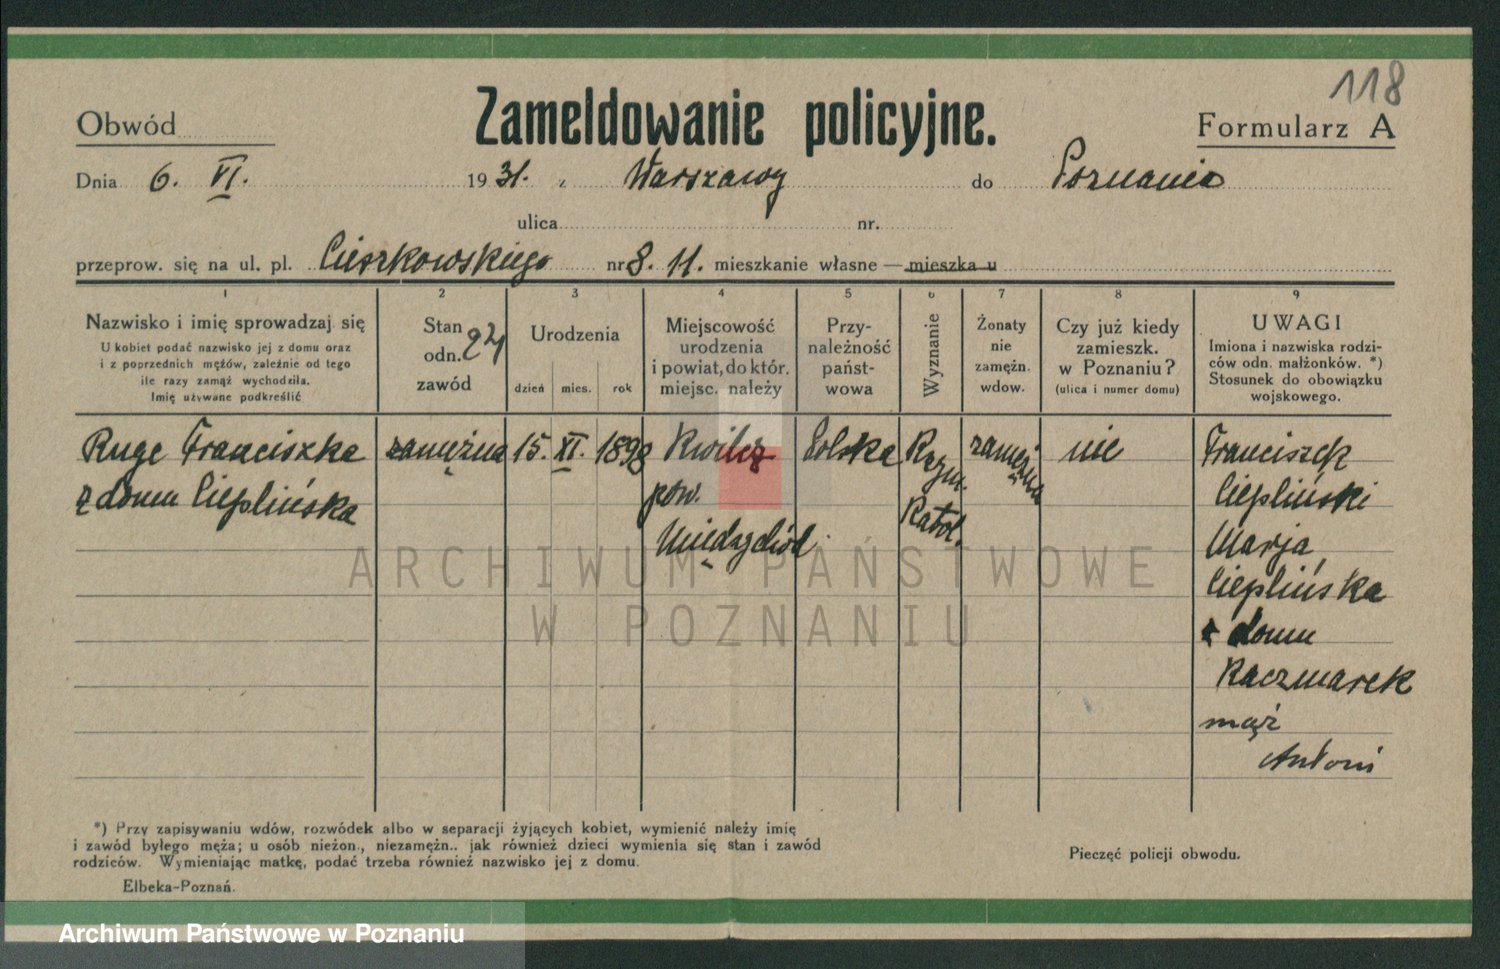 118
Zameldowanie policyjne.
Obwód
Formularz A
Dnia 6. VI. 1931. z Warszawy do Poznania
ulica nr.
przeprow. się na ul. pl. Cieszkowskiego nr 8. 11. mieszkanie własne — mieszka u
1 2 3 4 5 6 7 8 9
Nazwisko i imię sprowadzaj. się
U kobiet podać nazwisko jej z domu oraz
i z poprzednich mężów, zależnie od tego
ile razy zamąż wychodziła.
Imię używane podkreślić
Stan
odn.
zawód
Urodzenia
dzień mies. rok
Miejscowość
urodzenia
i powiat, do któr.
miejsc. należy
Przy-
należność
państ-
wowa
Wyznanie
Żonaty
nie
zamężn.
wdow.
Czy już kiedy
zamieszk.
w Poznaniu?
(ulica i numer domu)
UWAGI
Imiona i nazwiska rodzi-
ców odn. małżonków. *)
Stosunek do obowiązku
wojskowego.
Ruge Franciszka
z domu Cieplińska
zamężna
15. XI. 1898
Kwilcz
pow.
Międzychód
Polska
Rzym.
Katol.
zamężna
nie
Franciszek
Ciepliński
Marja
Cieplińska
z domu
Kaczmarek
mąż
Antoni
*) Przy zapisywaniu wdów, rozwódek albo w separacji żyjących kobiet, wymienić należy imię
i zawód byłego męża; u osób nieżon., niezamężn.. jak również dzieci wymienia się stan i zawód
rodziców. Wymieniając matkę, podać trzeba również nazwisko jej z domu.
Elbeka-Poznań.
Pieczęć policji obwodu.
ARCHIWUM PAŃSTWOWE
W POZNANIU
Archiwum Państwowe w Poznaniu